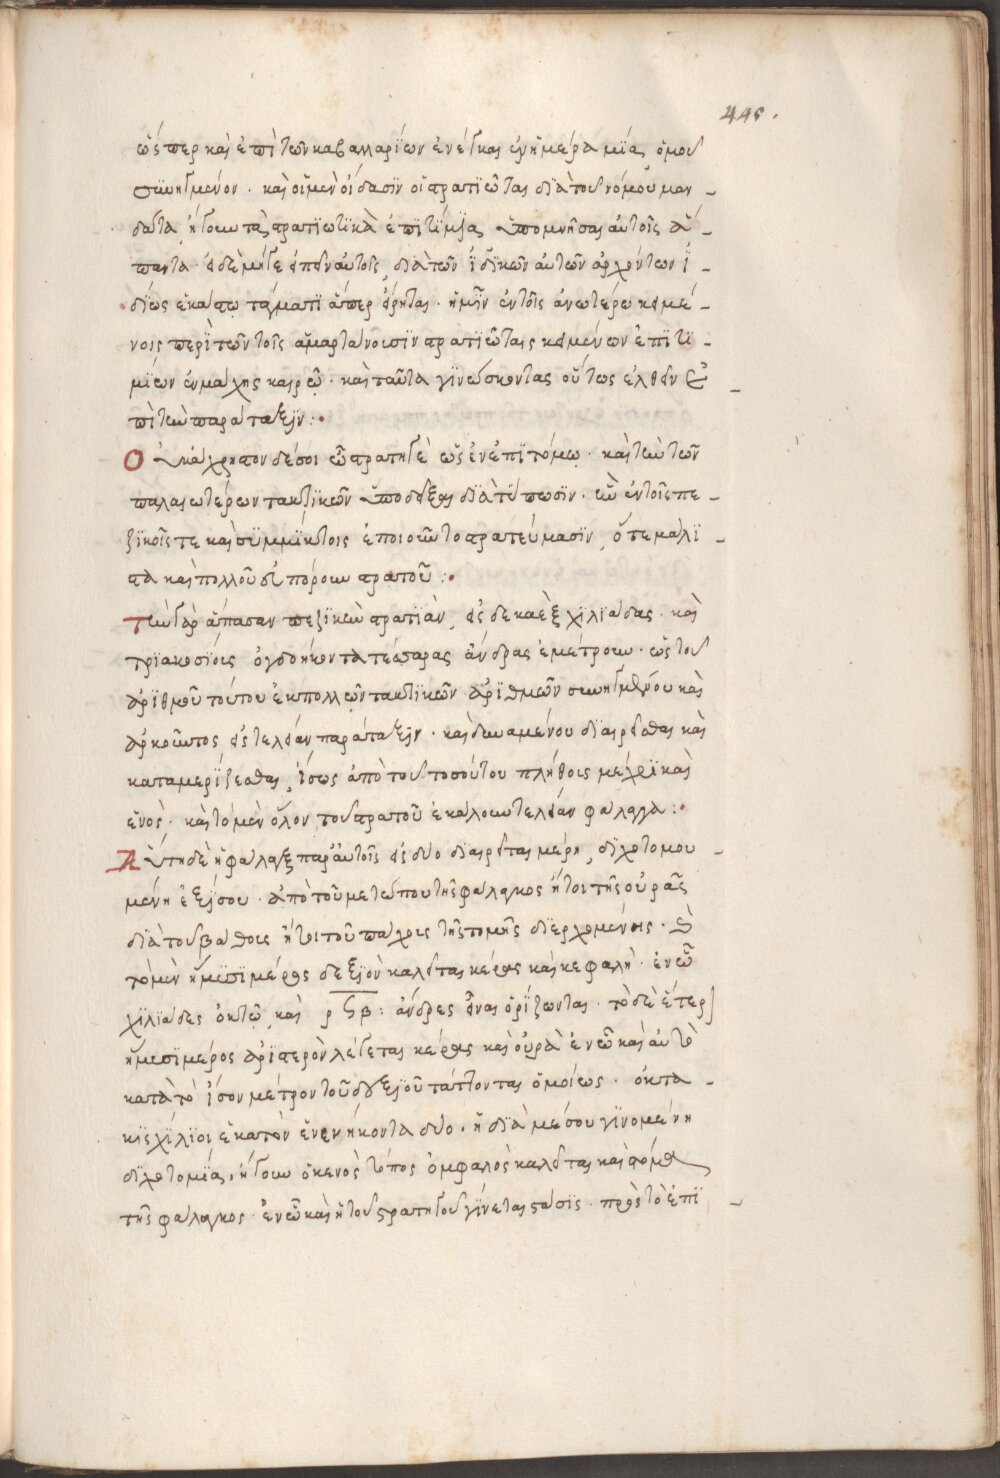 445.
ὥσπερ καὶ ἐπὶ τῶν καβαλλαρίων ἐνέγκαι ἐν ἡμέρα μία ὁμοῦ
συνηγμένον. καὶ οἱ μὲν οἴδασιν οἱ στρατιῶται διὰ τοῦ νόμου μαν-
δάτα, ἤγουν τὰ στρατιωτικὰ ἐπιτίμια, ὑπομνῆσαι αὐτοῖς ἅ-
παντα. εἰ δὲ μήγε εἰπεῖν αὐτοῖς, διὰ τῶν ἰδικῶν αὐτῶν ἀρχόντων ἰ-
δίως ἑκάστω τάγματι ἅπερ εἴρηται. ἡμῖν ἐν τοῖς ἀνωτέρω κειμέ-
νοις περὶ τῶν τοῖς ἁμαρτάνουσιν στρατιώταις κειμένων ἐπιτι-
μίων ἐν μάχης καιρῷ. καὶ ταῦτα γινώσκοντας οὕτως ἐλθεῖν ἐ-
πὶ τὴν παράταξιν:·
Οὐκ ἄχρηστον δέ σοι ὦ στρατηγὲ ὡς ἐν ἐπιτόμω. καὶ τὴν τῶν
παλαιωτέρων τακτικῶν ὑποδεῖξαι διατύπωσιν. ἣν ἐν τοῖς πε-
ζικοῖς τε καὶ συμμίκτοις ἐποιοῦντο στρατεύμασιν, ὅτε μάλι-
στα καὶ πολλοῦ εὐπόρουν στρατοῦ:·
Τὴν γὰρ ἅπασαν πεζικὴν στρατιὰν, εἰς δεκαὲξ χιλιάδας. καὶ
τριακοσίους ὀγδοήκοντα τέσσαρας ἄνδρας ἐμέτρουν. ὡς τοῦ
ἀριθμοῦ τούτου ἐκ πολλῶν τακτικῶν ἀριθμῶν συνηγμένου καὶ
ἀρκοῦντος εἰς τελείαν παράταξιν. καὶ δυναμένου διαιρεῖσθαι καὶ
καταμερίζεσθαι, ἴσως ἀπὸ τοῦ τοσούτου πλήθους μέχρι καὶ
ἑνός. καὶ τὸ μὲν ὅλον τοῦ στρατοῦ ἐκάλουν τελείαν φάλαγγα:·
Αὕτη δὲ ἡ φάλαγξ παρ' αὐτοῖς εἰς δύο διαιρεῖται μέρη, διχοτομου-
μένη ἐξ ἴσου. ἀπὸ τοῦ μετώπου τῆς φάλαγγος ἤτοι τῆς οὐρᾶς
διὰ τοῦ βάθους ἤτοι τοῦ πάχους τῆς τομῆς διερχομένης. καὶ
τὸ μὲν ἥμισι μέρος δεξιὸν καλεῖται κέρας καὶ κεφαλή. ἐν ᾧ
χιλιάδες ὀκτὼ, καὶ ρϟβ: ἄνδρες εἶναι ὁρίζονται. τὸ δὲ ἕτερον
ἥμεσι μέρος ἀριστερὸν λέγεται κέρας καὶ οὐρὰ ἐν ᾧ καὶ αὐτὸ
κατὰ τὸ ἴσον μέτρον τοῦ δεξιοῦ τάττονται ὁμοίως. ὀκτα-
κισχίλιοι ἑκατὸν ἐνενήκοντα δύο. ἡ διὰ μέσου γινομένη
διχοτομία, ἤγουν ὁ κενὸς τόπος ὀμφαλὸς καλεῖται καὶ στόμα
τῆς φάλαγγος. ἐν ᾧ καὶ ἡ τοῦ στρατηγοῦ γίνεται στάσις. πρὸς τὸ ἐπι-